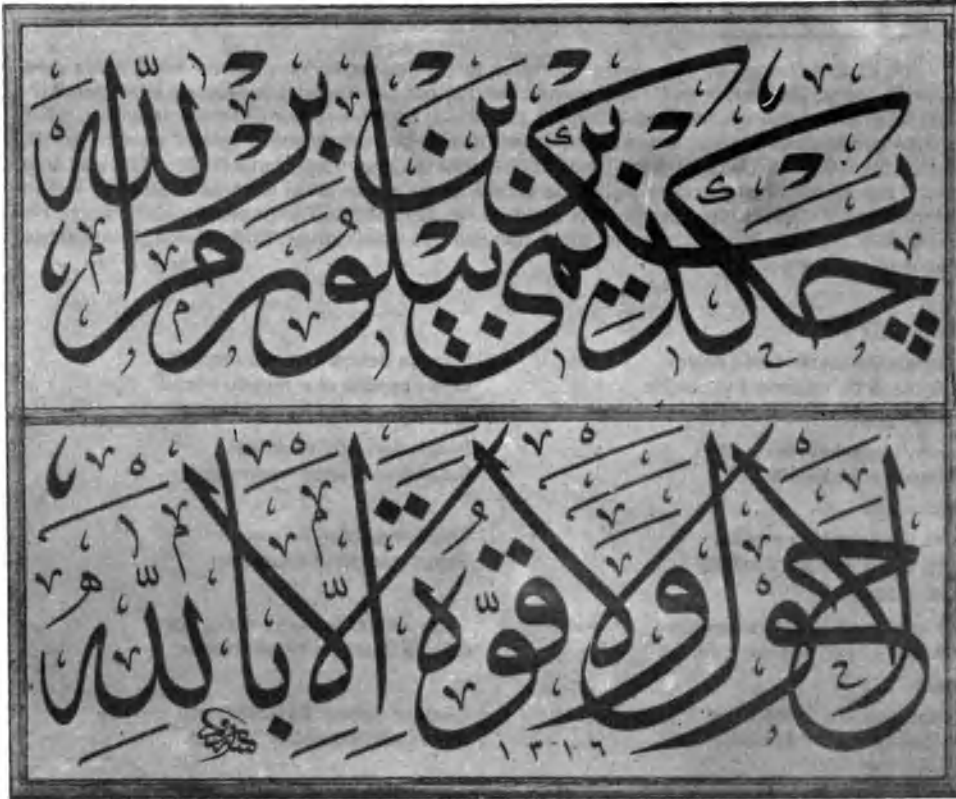 چكديكمى بر بن بيلورم بر الله
لا حول ولا قوّة الّا بالله
١٣١٦